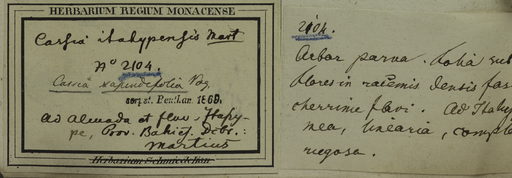 HERBARIUM REGIUM MONACENSE.
Cassia itahypensis Mart
No 2104.
Cassia sapindifolia Vog.
comp. st. Benth. an. 1869.
Ad Almada et flum. Itahy-
pe, Prov. Bahiae. Debr.:
Martius
Herbarium Schmiedelian
2104.
Arbor parva. Folia sub
flores in racemis densis fas
cherrime flavi. Ad Itahy
nea, linearia, comple
rugosa.